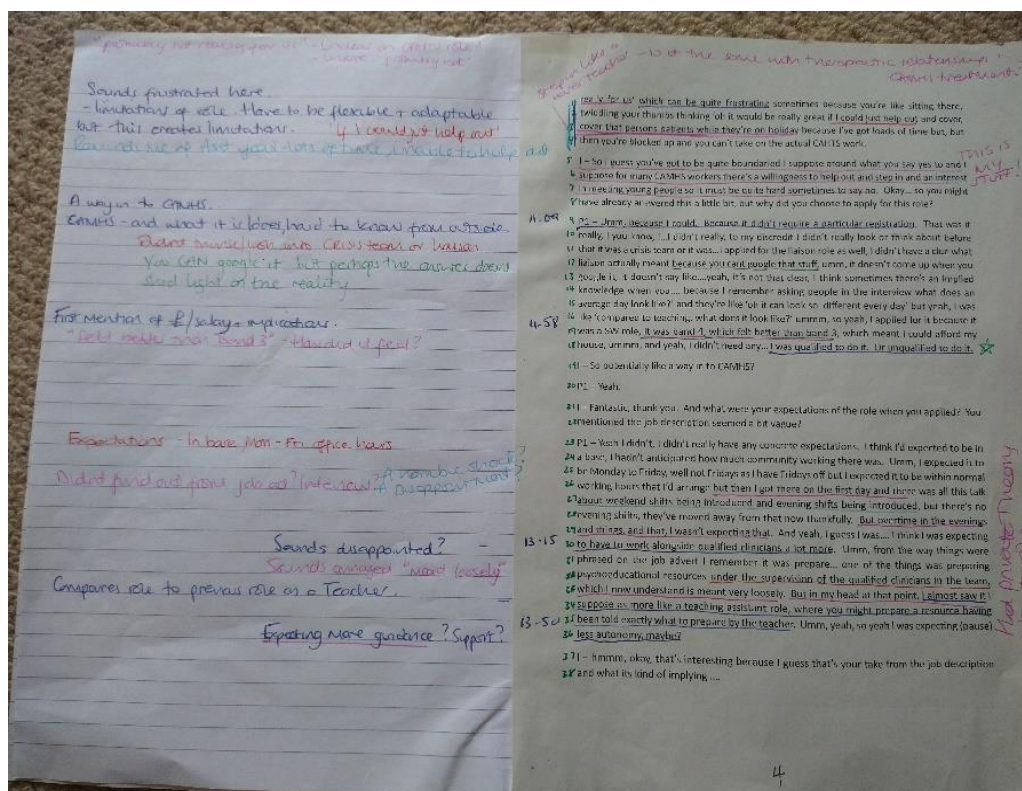 Sounds frustrated here.
- limitations of role. Have to be flexible + adaptable
but this creates limitations. "if I could just help out"
A way in to CAMHS.
CAMHS - and what it is/does, hard to know from outside
You CAN google it but perhaps the answer doesn't
shed light on the reality
First Mention of £/salary + implications.
"felt better than band 3" - How did it feel?
Expectations - In base, Mon - Fri office hours
Didn't find out from job ad? Interview? A horrible shock?
A disappointment?
Sounds disappointed? -
Sounds annoyed "meant loosely"
Compares role to previous role as a Teacher.
Expecting more guidance? Support?
- is it the same with therapeutic relationships?
CAMHS treatment?
really for us' which can be quite frustrating sometimes because you're like sitting there,
twiddling your thumbs thinking 'oh it would be really great if I could just help out and cover,
cover that persons patients while they're on holiday because I've got loads of time but, but
then you're blocked up and you can't take on the actual CAMHS work.
THIS IS MY STUFF!
5 I – So I guess you've got to be quite boundaried I suppose around what you say yes to and I
6 suppose for many CAMHS workers there's a willingness to help out and step in and an interest
7 in meeting young people so it must be quite hard sometimes to say no. Okay... so you might
8 have already answered this a little bit, but why did you choose to apply for this role?
9 P1 – Umm, because I could. Because it didn't require a particular registration. That was it
10 really, I you know, ...I didn't really, to my discredit I didn't really look or think about before
11 that it was a crisis team or it was... I applied for the liaison role as well, I didn't have a clue what
12 liaison actually meant because you cant google that stuff, umm, it doesn't come up when you
13 google it, it doesn't say like....yeah, it's not that clear, I think sometimes there's an implied
14 knowledge when you.... because I remember asking people in the interview what does an
15 average day look like?' and they're like 'oh it can look so different every day' but yeah, I was
16 like 'compared to teaching, what does it look like?' ummm, so yeah, I applied for it because it
was a SW role, it was band 4, which felt better than band 3, which meant I could afford my
18 house, ummm, and yeah, I didn't need any... I was qualified to do it. Or unqualified to do it.
19 I – So potentially like a way in to CAMHS?
20 P1 – Yeah.
21 I – Fantastic, thank you. And what were your expectations of the role when you applied? You
22 mentioned the job description seemed a bit vague?
23 P1 – Yeah I didn't, I didn't really have any concrete expectations. I think I'd expected to be in
24 a base, I hadn't anticipated how much community working there was. Umm, I expected is to
25 be Monday to Friday, well not Fridays as I have Fridays off but I expected it to be within normal
26 working hours that I'd arrange but then I got there on the first day and there was all this talk
27 about weekend shifts being introduced and evening shifts being introduced, but there's no
28 evening shifts, they've moved away from that now thankfully. But overtime in the evenings
29 and things, and that, I wasn't expecting that. And yeah, I guess I was... I think I was expecting
13-15
30 to have to work alongside qualified clinicians a lot more. Umm, from the way things were
31 phrased on the job advert I remember it was prepare... one of the things was preparing
32 psychoeducational resources under the supervision of the qualified clinicians in the team,
which I now understand is meant very loosely. But in my head at that point, I almost saw it I
34 suppose as more like a teaching assistant role, where you might prepare a resource having
13-50
35 been told exactly what to prepare by the teacher. Umm, yeah, so yeah I was expecting (pause)
36 less autonomy, maybe?
Had private Theory
37 I – hmmm, okay, that's interesting because I guess that's your take from the job description
38 and what its kind of implying ....
4